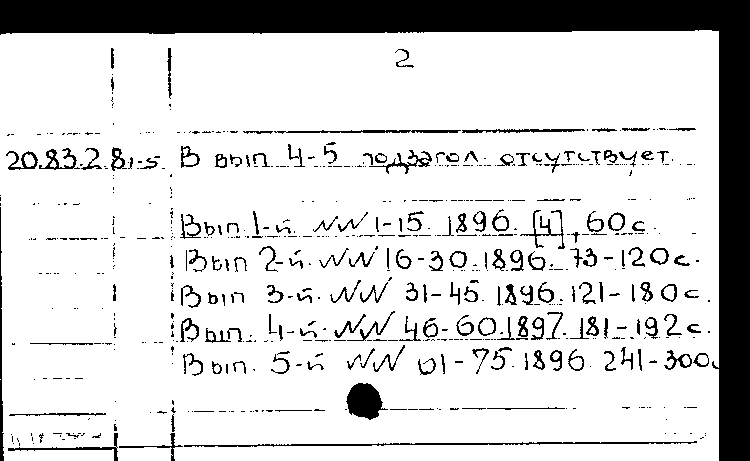 2
20.83.2.81-5 В вып 4-5 подзагол. отсутствует.
Вып 1-й NN 1-15. 1896. [4], 60 с.
Вып 2-й. NN 16-30. 1896. 73-120 с.
Вып 3-й. NN 31-45. 1896. 121-180 с.
Вып. 4-й. NN 46-60. 1897. 181-192 с.
Вып. 5-й NN 61-75. 1896. 241-300с